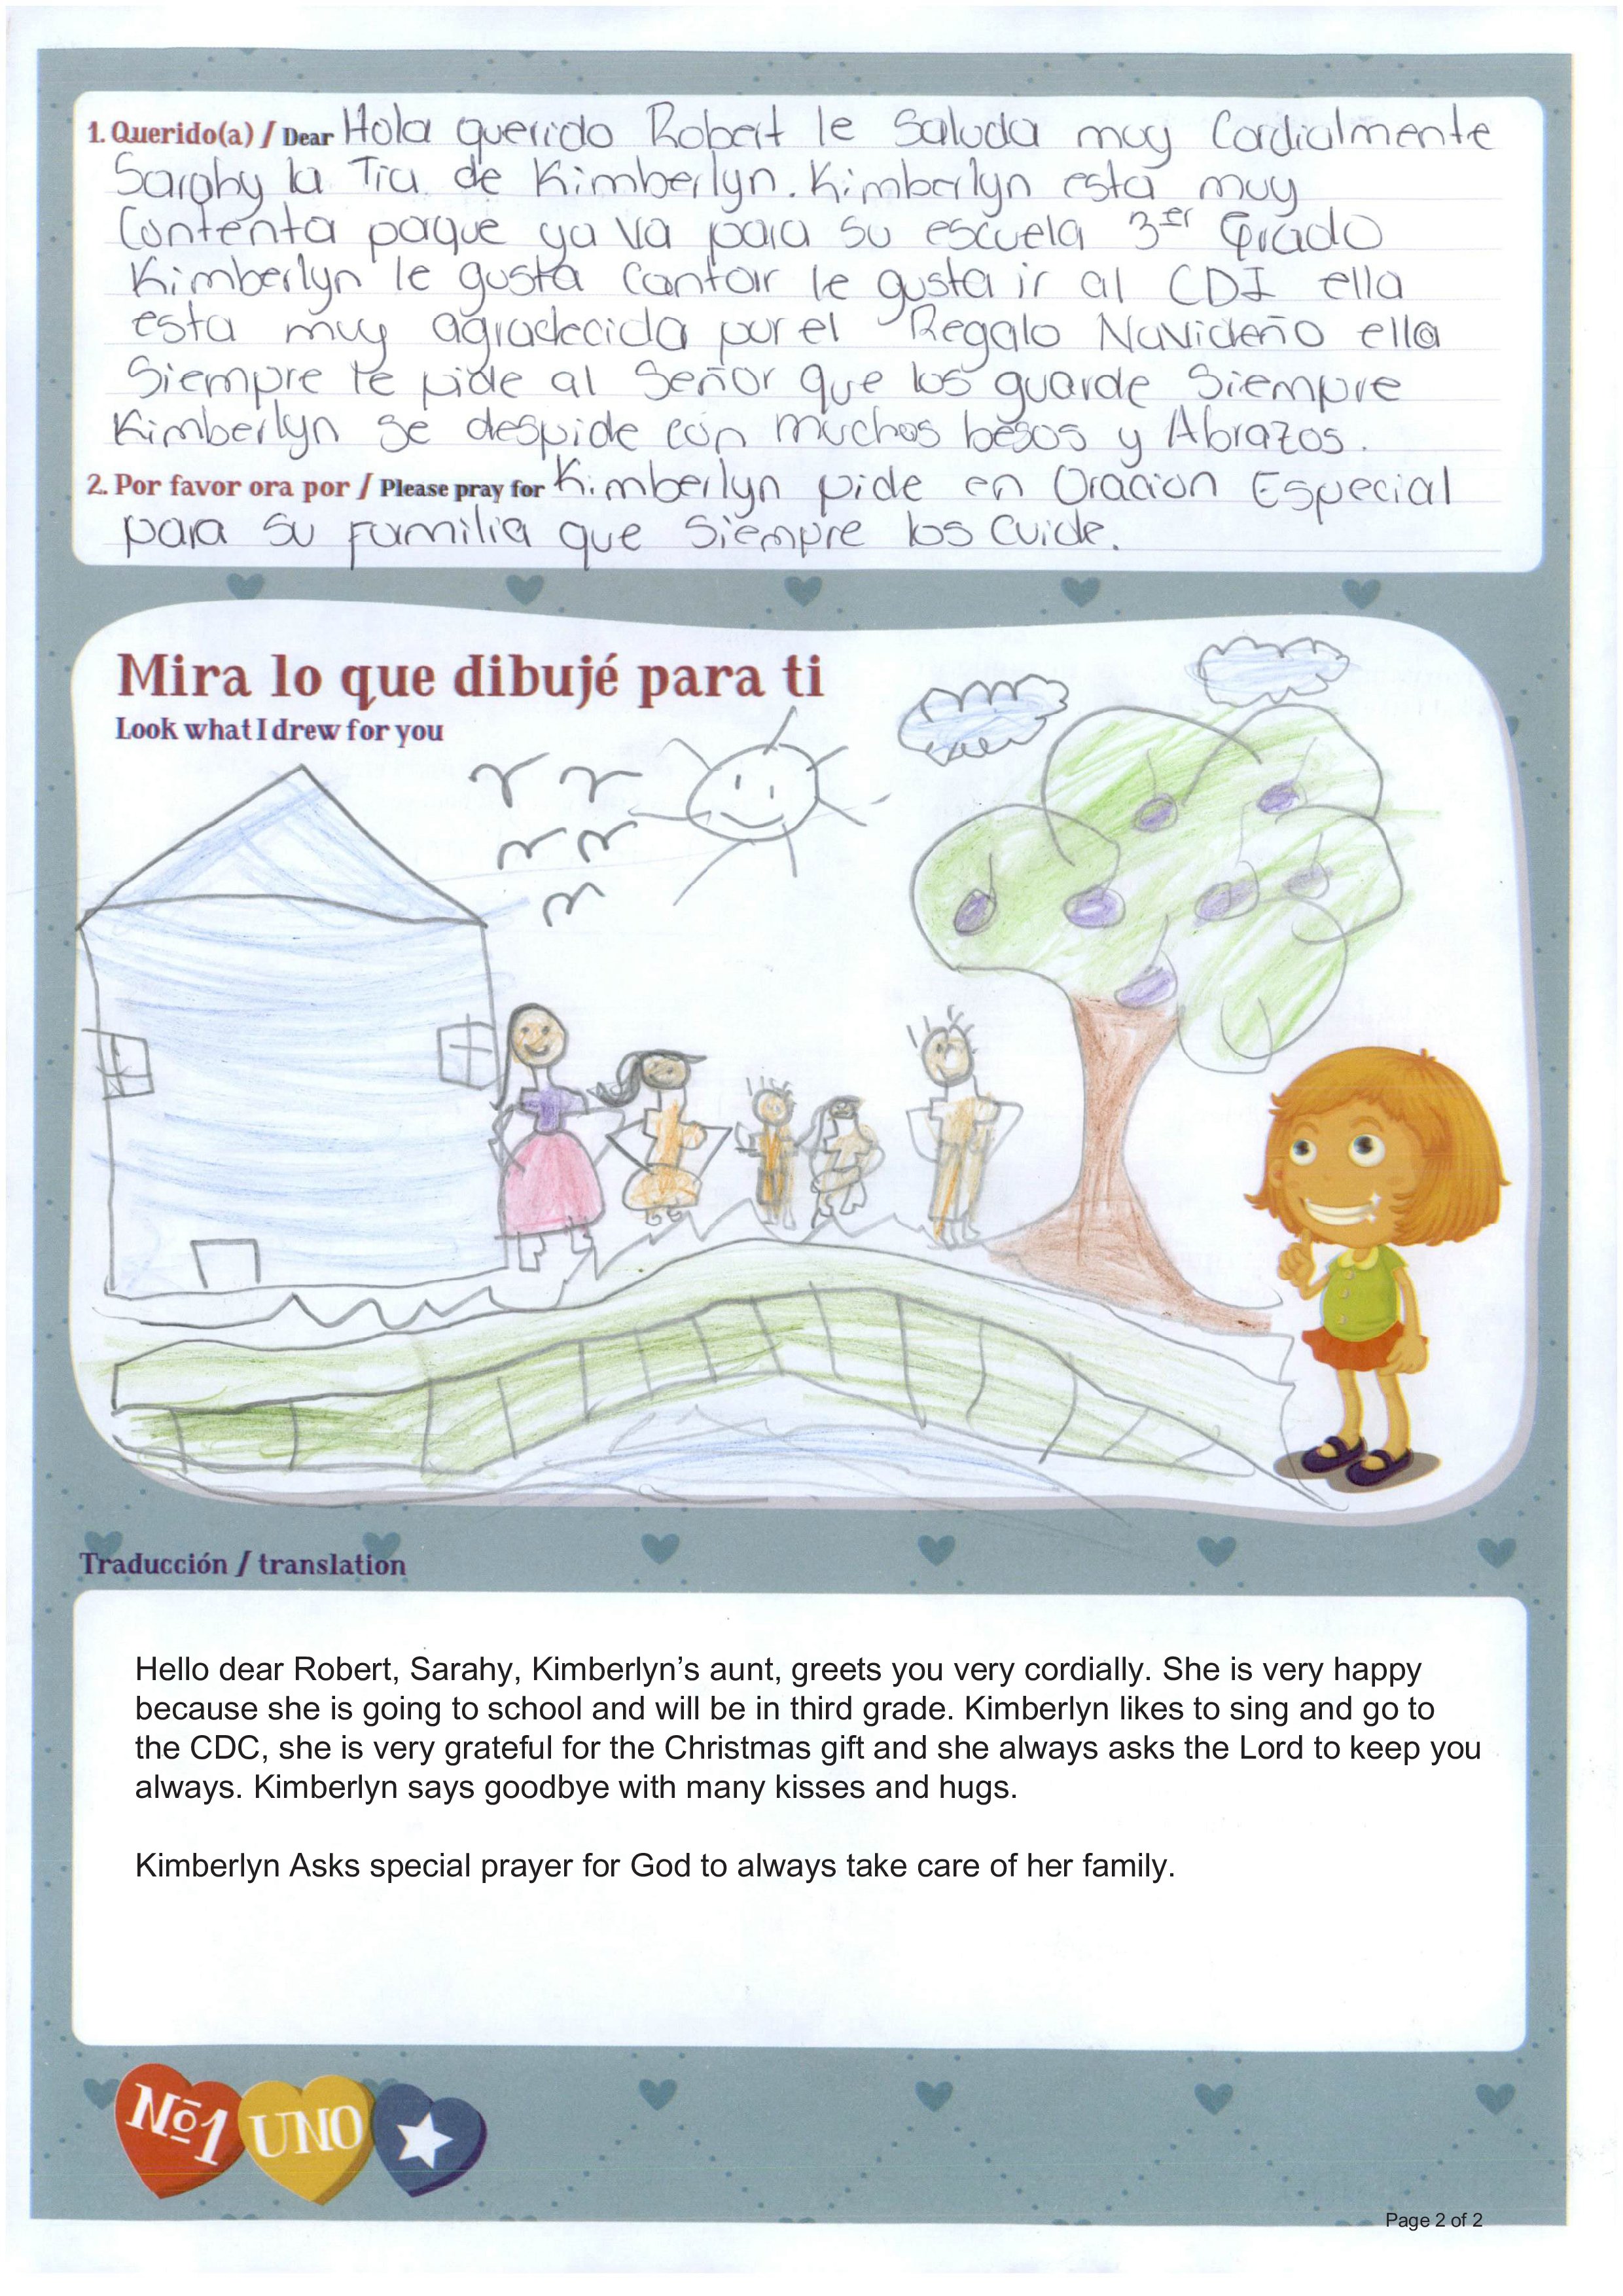 1. Querido(a) / Dear Hola querido Robert le Saluda muy Cordialmente
Sarahy la Tia de Kimberlyn. Kimberlyn esta muy
Contenta paque ya va para su escuela 3er Grado
Kimberlyn le gusta Cantar le gusta ir al CDI ella
esta muy agradecida por el Regalo Navideño ella
Siempre le pide al Señor que los guarde Siempre
Kimberlyn se despide con muchos besos y Abrazos.
2. Por favor ora por / Please pray for Kimberlyn pide en Oracion Especial
para su Familia que Siempre los Cuide.
Mira lo que dibujé para ti
Look what I drew for you
Traducción / translation
Hello dear Robert, Sarahy, Kimberlyn’s aunt, greets you very cordially. She is very happy
because she is going to school and will be in third grade. Kimberlyn likes to sing and go to
the CDC, she is very grateful for the Christmas gift and she always asks the Lord to keep you
always. Kimberlyn says goodbye with many kisses and hugs.
Kimberlyn Asks special prayer for God to always take care of her family.
Nº1 UNO
Page 2 of 2